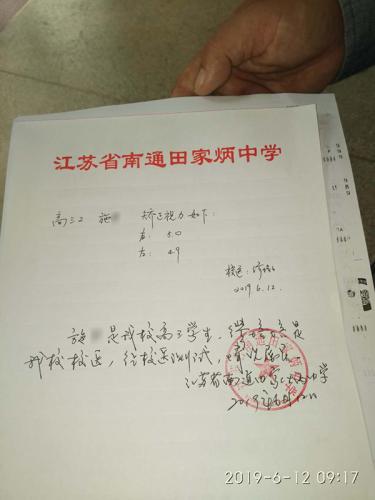 江苏省南通田家炳中学
高三2 施 矫正视力如下：
右：5.0
左：4.9
校医：
2019.6.12.
施 是我校高三学生，
我校校医，经校医测试，情况属实
江苏省南通田家炳中学
2019年6月12日
2019-6-12 09:17